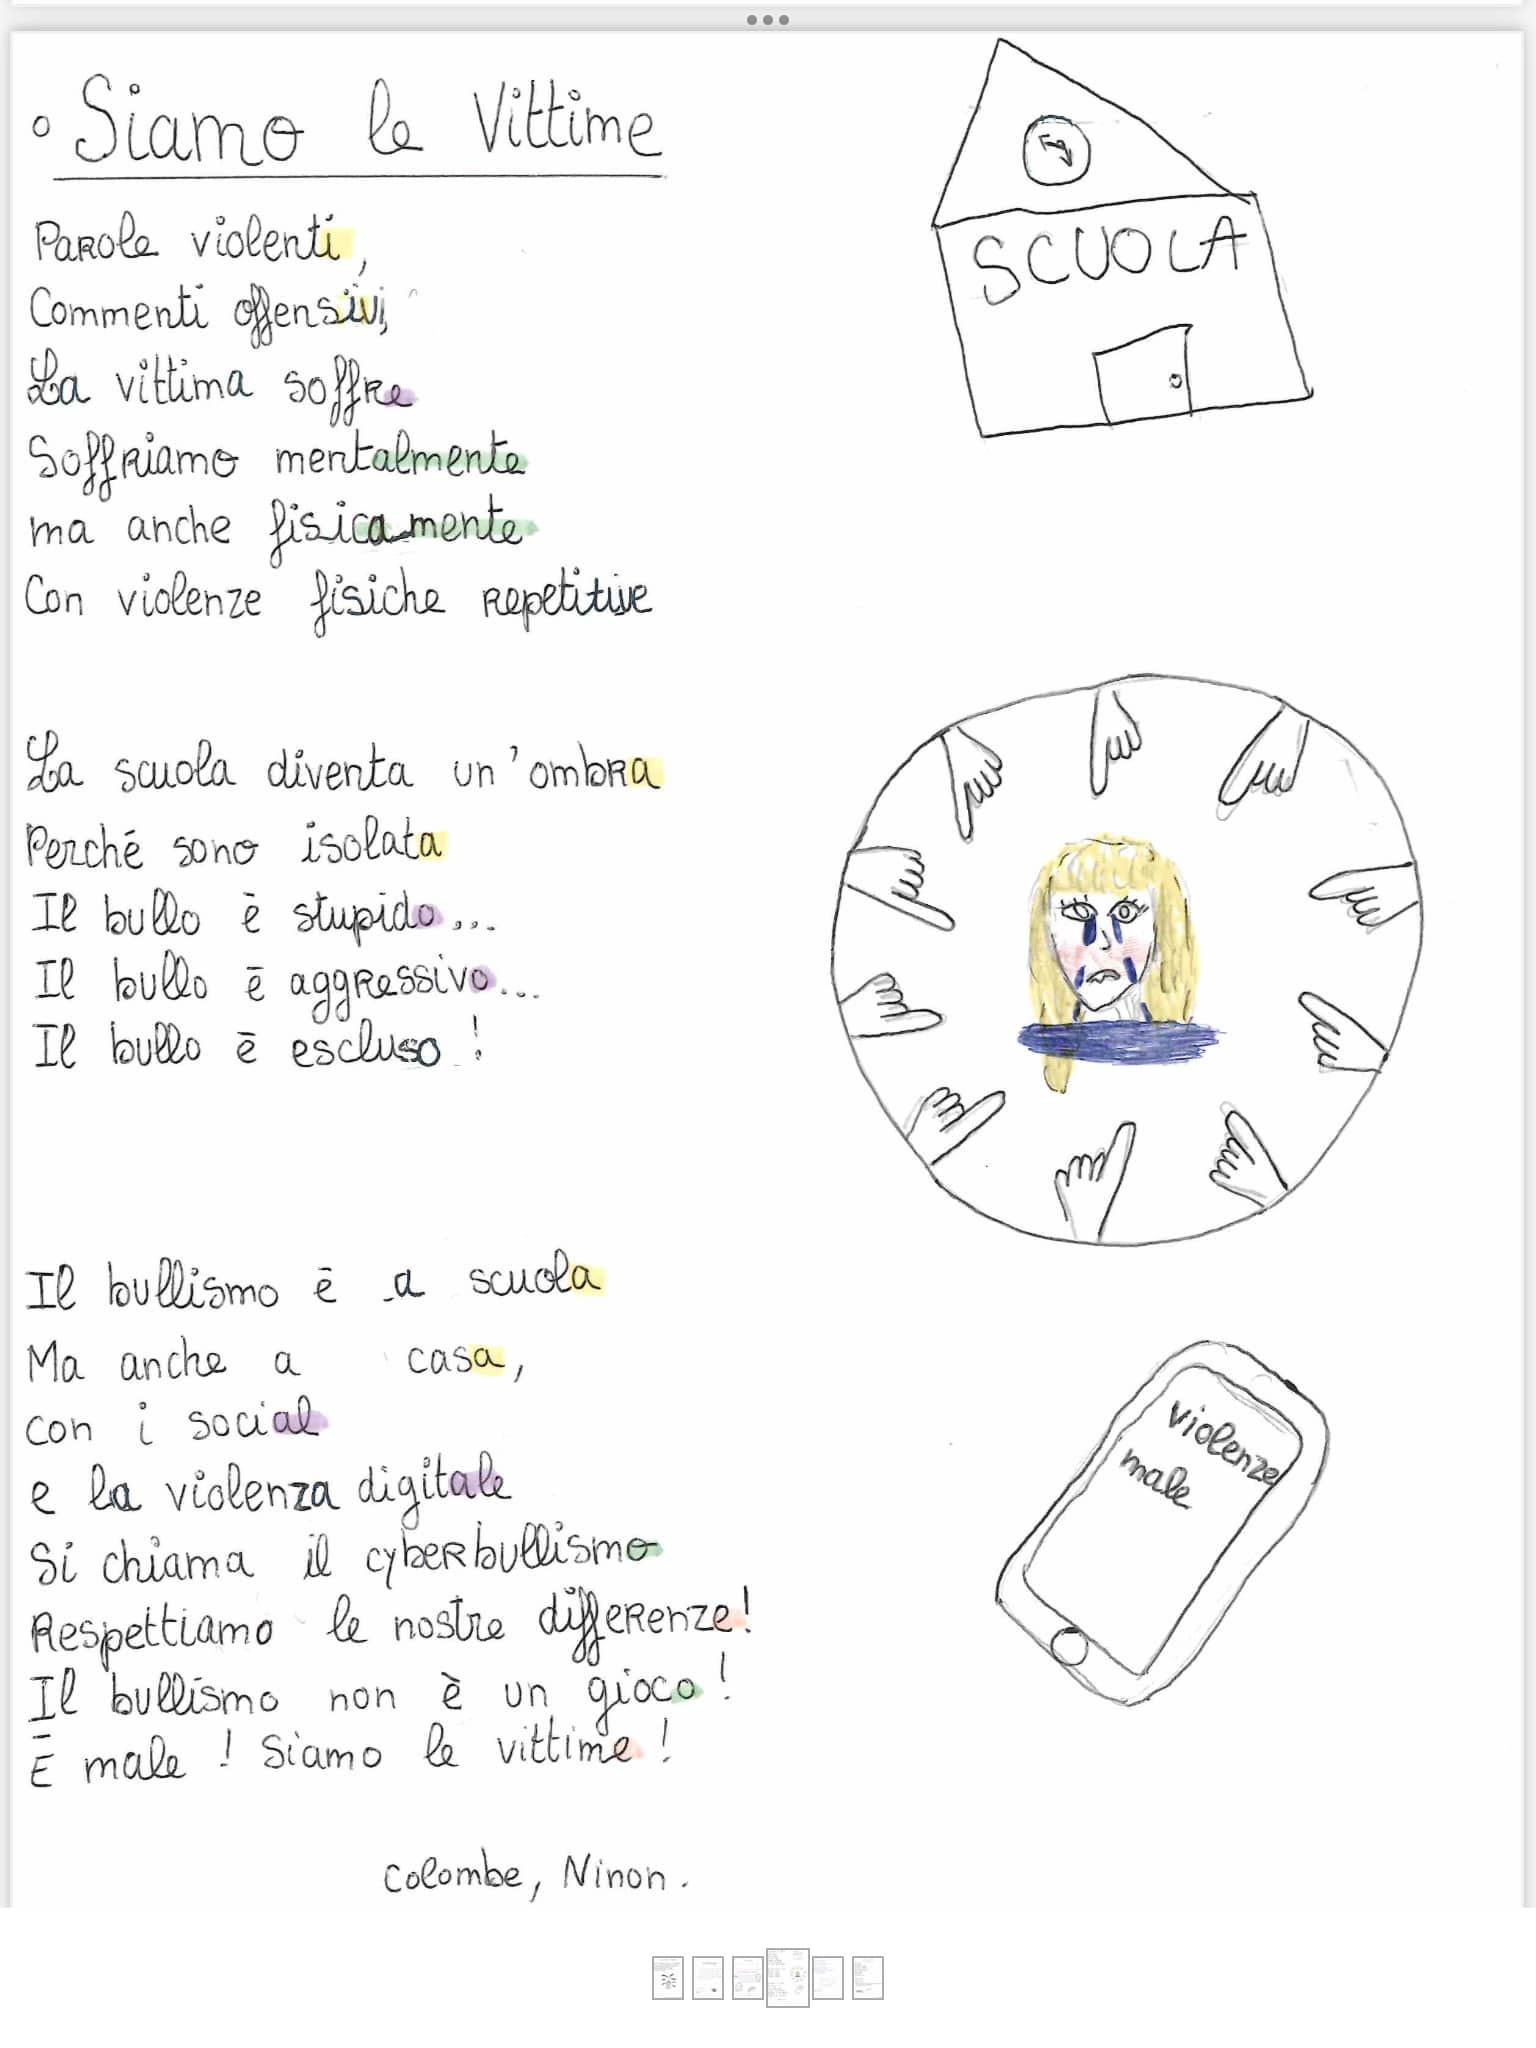 Siamo le Vittime
SCUOLA
Parole violenti,
Commenti offensivi,
La vittima soffre
Soffriamo mentalmente
ma anche fisicamente
Con violenze fisiche repetitive
La scuola diventa un'ombra
Perché sono isolata
Il bullo è stupido...
Il bullo è aggressivo...
Il bullo è escluso !
Il bullismo è a scuola
Ma anche a casa,
con i social
e la violenza digitale
Si chiama il cyberbullismo
Respettiamo le nostre differenze!
Il bullismo non è un gioco !
È male ! Siamo le vittime !
violenze
male
Colombe, Ninon.